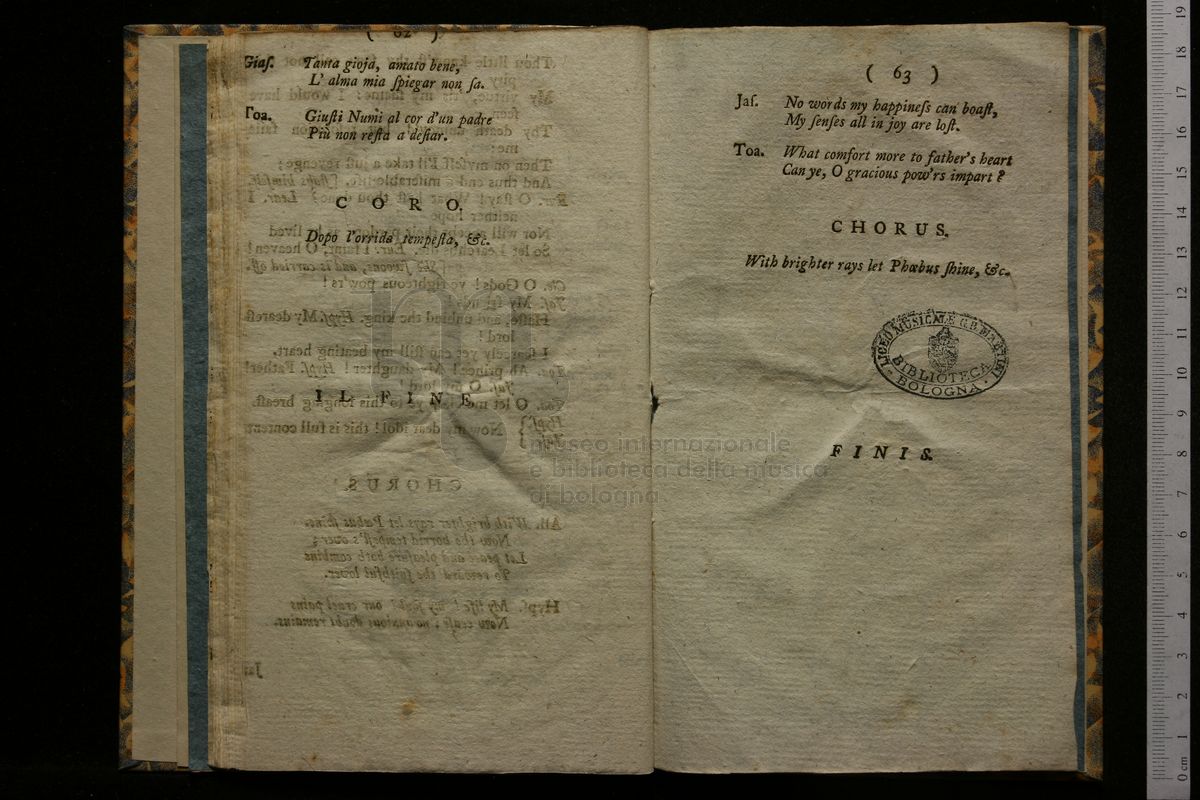 ( 62 )
Gias. Tanta gioja, amato bene,
L' alma mia ſpiegar non ſa.
Toa. Giuſti Numi al cor d'un padre
Più non reſta a deſiar.
C O R O.
Dopo l'orrida tempeſta, &c.
I L F I N E.
( 63 )
Jaſ. No words my happineſs can boaſt,
My ſenſes all in joy are loſt.
Toa. What comfort more to father's heart
Can ye, O gracious pow'rs impart?
C H O R U S.
With brighter rays let Phœbus ſhine, &c.
LICEO MUSICALE G.B. MARTINI
BIBLIOTECA
· BOLOGNA ·
F I N I S.
museo internazionale
e biblioteca della musica
di bologna
0 cm 1 2 3 4 5 6 7 8 9 10 11 12 13 14 15 16 17 18 19